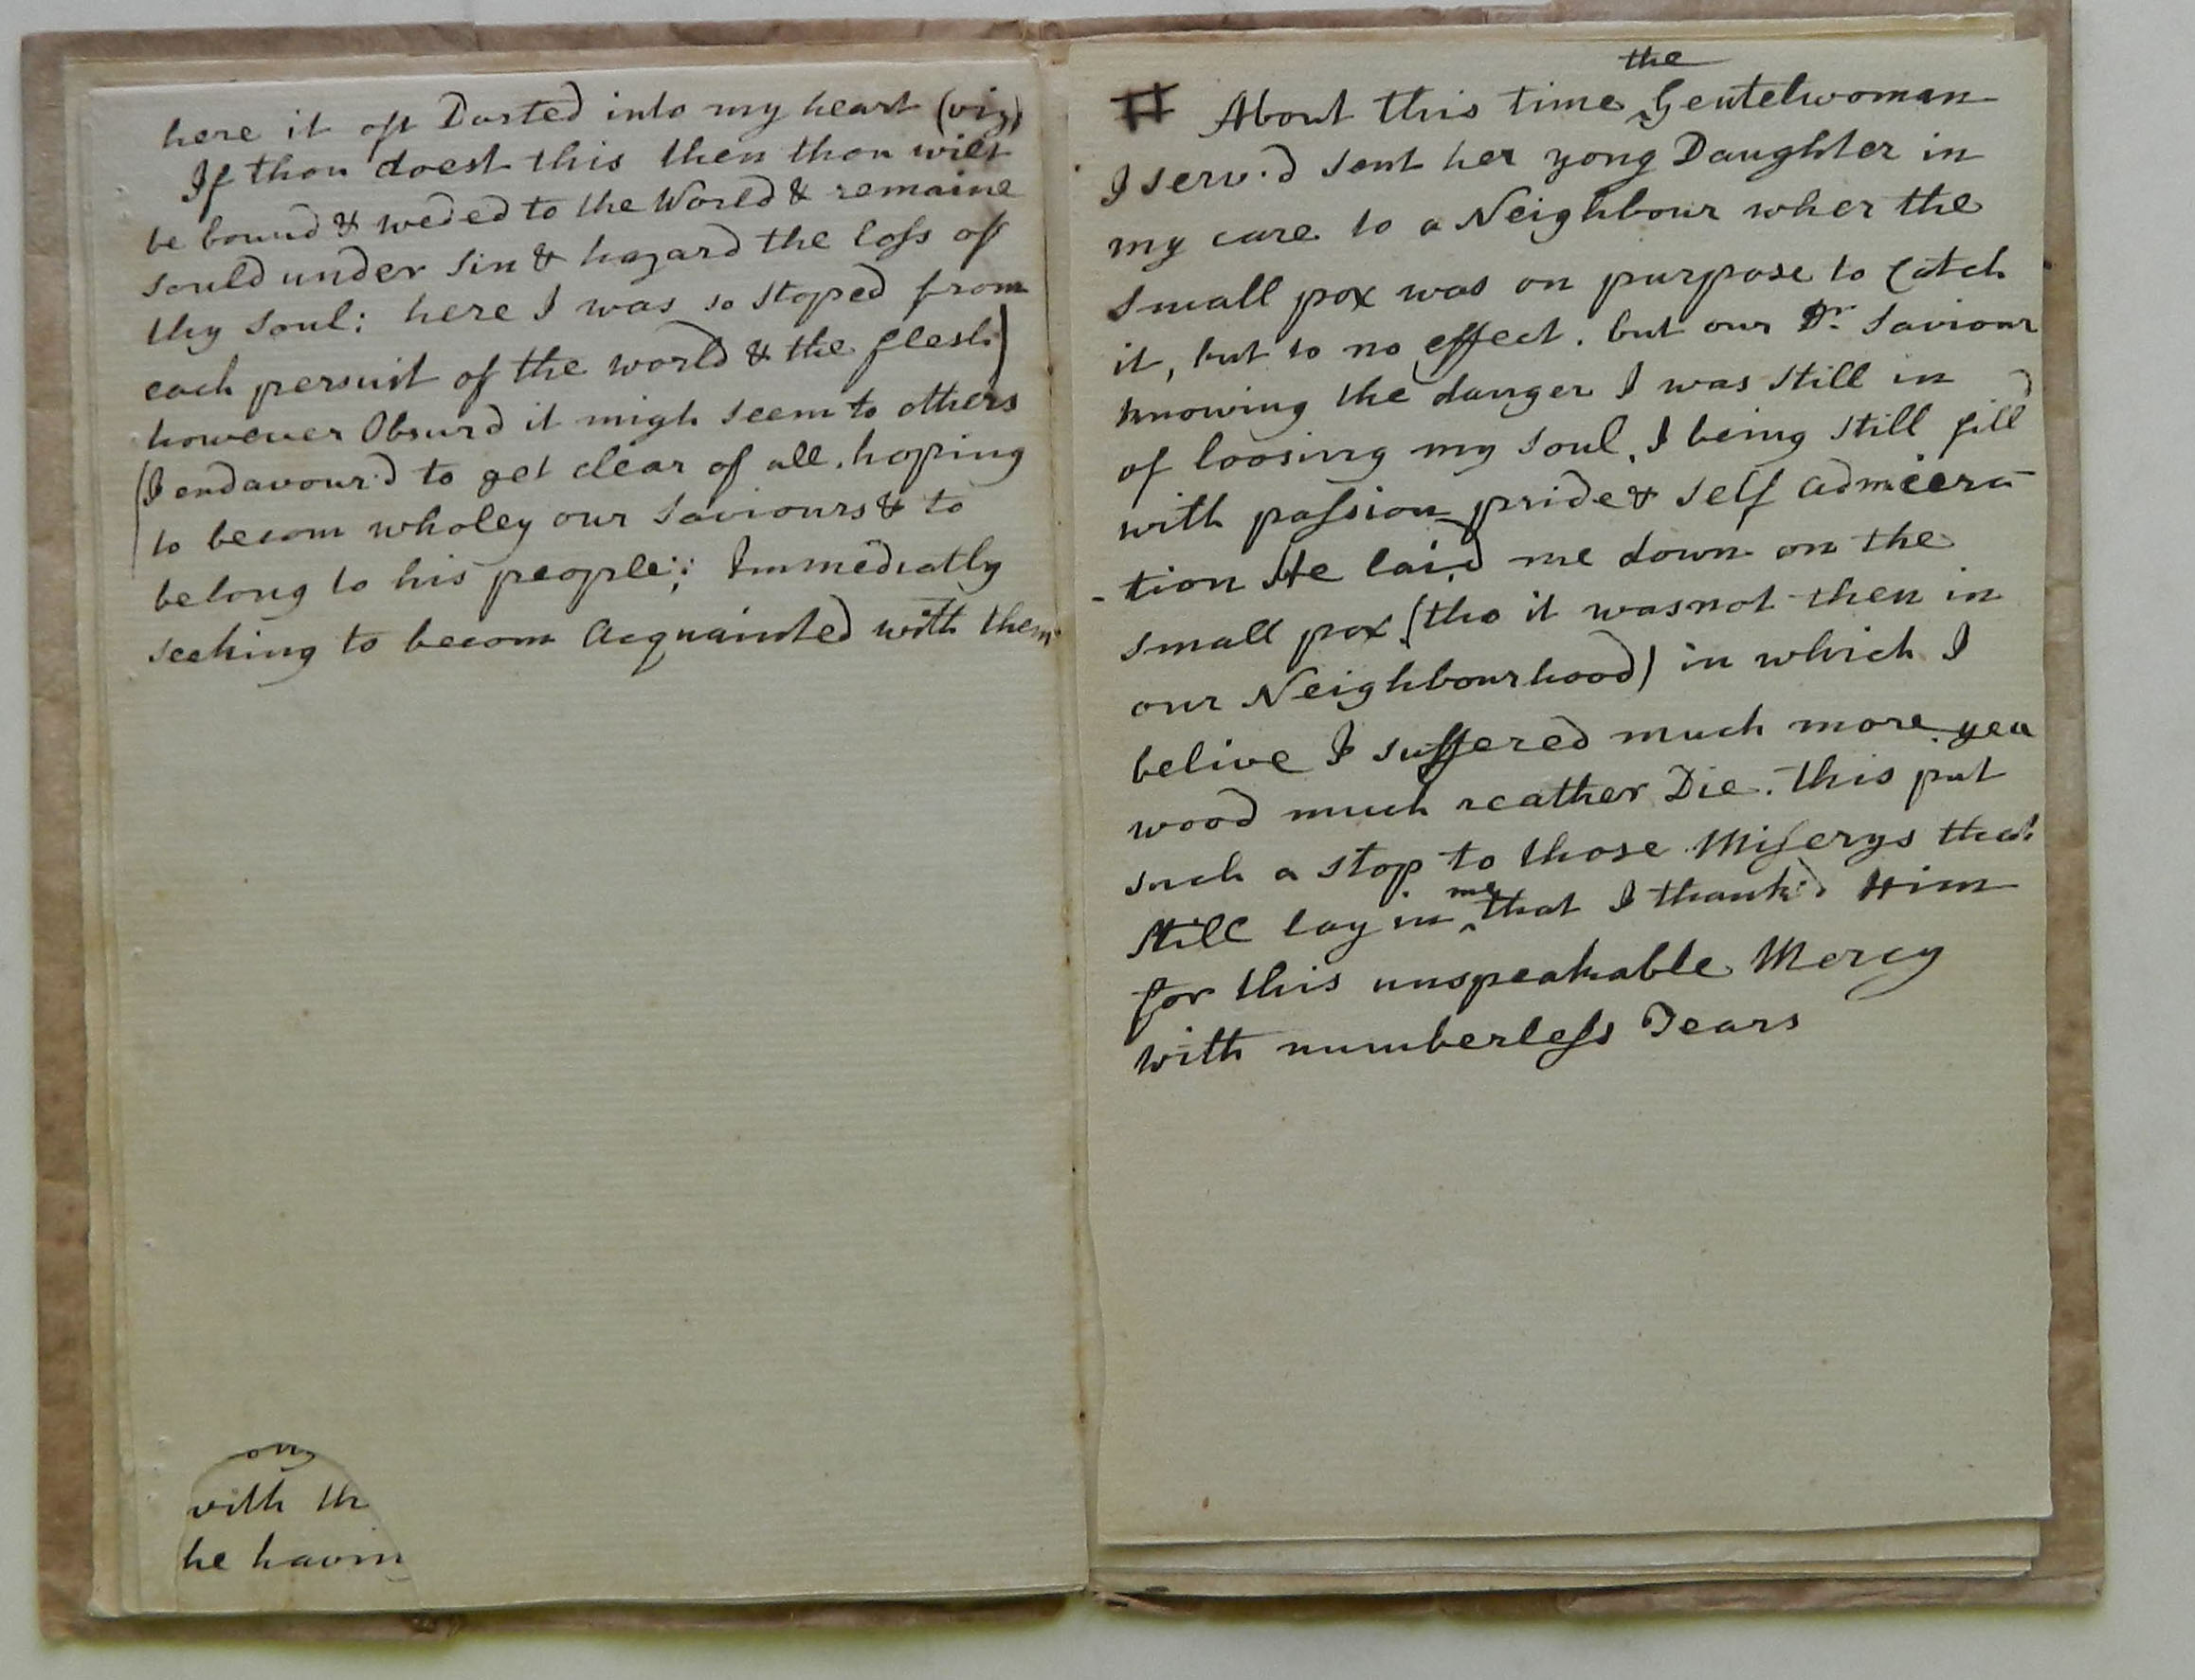 here it oft Darted into my heart (viz)
If thou doest this then thou wilt
be bound & weded to the World & remaine
sould under sin & hazard the loss of
thy soul: here I was so stoped from
each persuit of the world & the flesh)
however Obsurd it migh seem to others
(I endavour'd to get clear of all. hoping
to becom wholey our Saviours & to
belong to his people; Immediatly
seeking to becom Acquainted with them
ong
with th
he havin
# About this time the Gentelwoman
I serv'd sent her yong Daughter in
my care to a Neighbour wher the
small pox was on purpose to Catch
it, but to no effect. but our Dr. Saviour
knowing the danger I was still in
of loosing my soul, I being still fill'd
with passion pride & self admeera
-tion He laid me down on the
small pox (tho it was not then in
our Neighbourhood) in which I
belive I suffered much more yea
wood much reather Die. this put
such a stop to those Miserys that
still lay in me that I thank'd Him
for this unspeakable Mercy
with numberless Tears